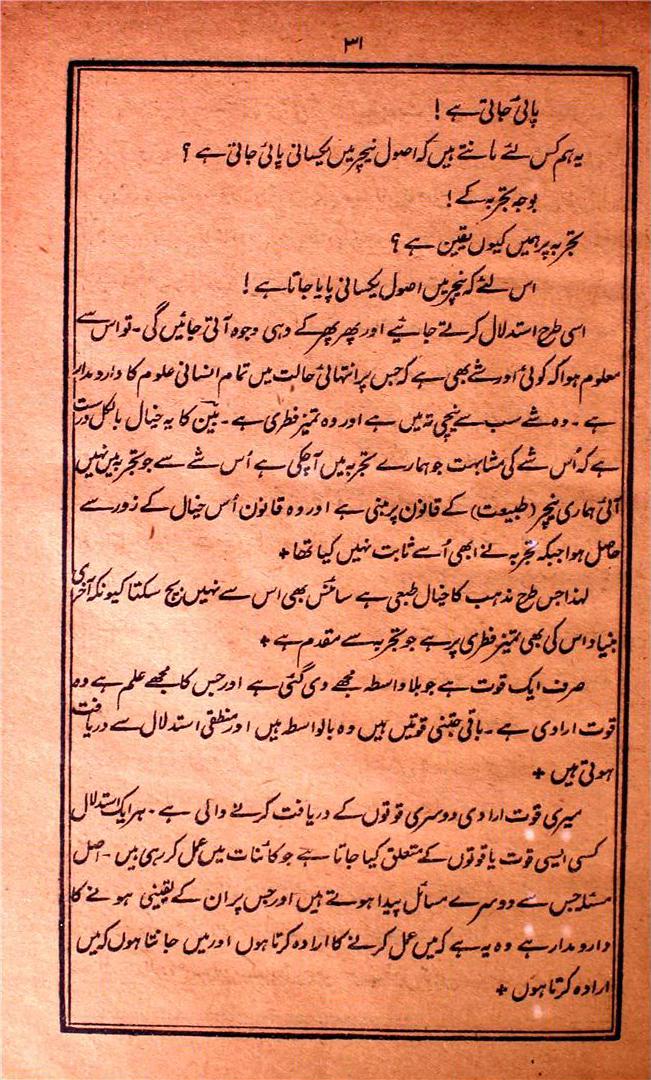 ۳۱
پائی جاتی ہے !
یہ ہم کس لئے مانتے ہیں کہ اصول نیچر میں یکسانی پائی جاتی ہے ؟
بوجہ تجربہ کے !
تجربہ پر ہمیں کیوں یقین ہے ؟
اس لئے کہ نیچر میں اصول یکسانی پایا جاتا ہے !
اسی طرح استدلال کرتے جائیے اور پھر پھر کے وہی وجوہ آتی جائیں گی۔ تو اس سے
معلوم ہوا کہ کوئی اور شے بھی ہے کہ جس پر انتہائی حالت میں تمام انسانی علوم کا دارومدار
ہے۔ وہ شے سب سے نیچی تہ میں ہے اور وہ تمیز فطری ہے۔ بین کا یہ خیال بالکل درست
ہے کہ اُس شے کی مشابہت جو ہمارے تجربہ میں آچکی ہے اُس شے سے جو تجربہ میں نہیں
آئی ہماری نیچر (طبیعت) کے قانون پر مبنی ہے اور وہ قانون اُس خیال کے زور سے
حاصل ہوا جبکہ تجربہ نے ابھی اُسے ثابت نہیں کیا تھا +
لہذا جس طرح مذہب کا خیال طبعی ہے سائنس بھی اس سے نہیں بچ سکتا کیونکہ آخری
بنیاد اس کی بھی تمیز فطری پر ہے جو تجربہ سے مقدم ہے +
صرف ایک قوت ہے جو بلا واسطہ مجھے دی گئی ہے اور جس کا مجھے علم ہے وہ
قوت ارادی ہے۔ باقی جتنی قوتیں ہیں وہ بالواسطہ ہیں اور منطقی استدلال سے دریافت
ہوتی ہیں +
میری قوت ارادی دوسری قوتوں کے دریافت کرنے والی ہے۔ ہر ایک استدلال
کسی ایسی قوت یا قوتوں کے متعلق کیا جاتا ہے جو کائنات میں عمل کر رہی ہیں۔ اصل
مسئلہ جس سے دوسرے مسائل پیدا ہوتے ہیں اور جس پر ان کے یقینی ہونے کا
دارومدار ہے وہ یہ ہے کہ میں عمل کرنے کا ارادہ کرتا ہوں اور میں جانتا ہوں کہ میں
ارادہ کرتا ہوں +